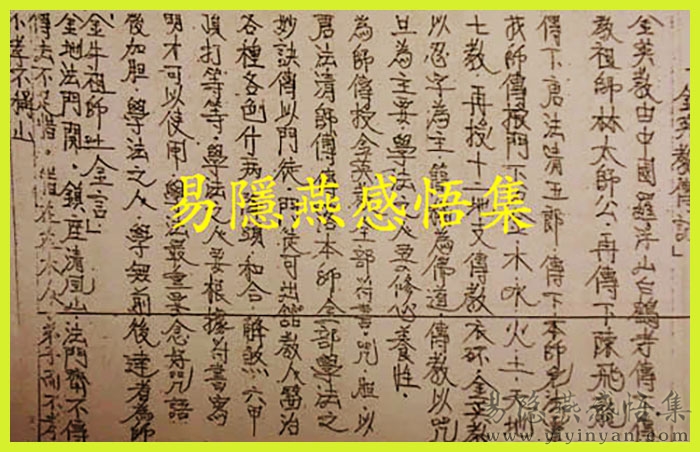 金英教傳記」
金英教由中國羅浮山白鶴寺傳
教祖師林太師公.再傳下陳飛龍
傳下唐法清五郎傳下.本師
我師傳授門下 木水.火土.天地
七教.再授十二地支傳教 金英教
以忍字為主. 為佛道.傳教以咒
旦為主要學法之人要修心養性.
為師傳授金英教全部符書.咒胆.以
唐法清師傳 本師全部學法之
妙訣傳以門徒.門徒可出館教人醫治
各種各色什病 頭.和合.解煞.六甲
打等等.學法之人要根據符書寫
明才可以使用.學法最重要念好咒語
後加胆.學法之人.學無前後達者為師
金牛祖師吐金言.」
金地法門開.鎮座清風山.法門齊不傳
傳去不足惜.惜在 木人.弟子而不孝
不孝不 山
易隱燕感悟集
易隐燕感悟集
www.yiyinyan.com